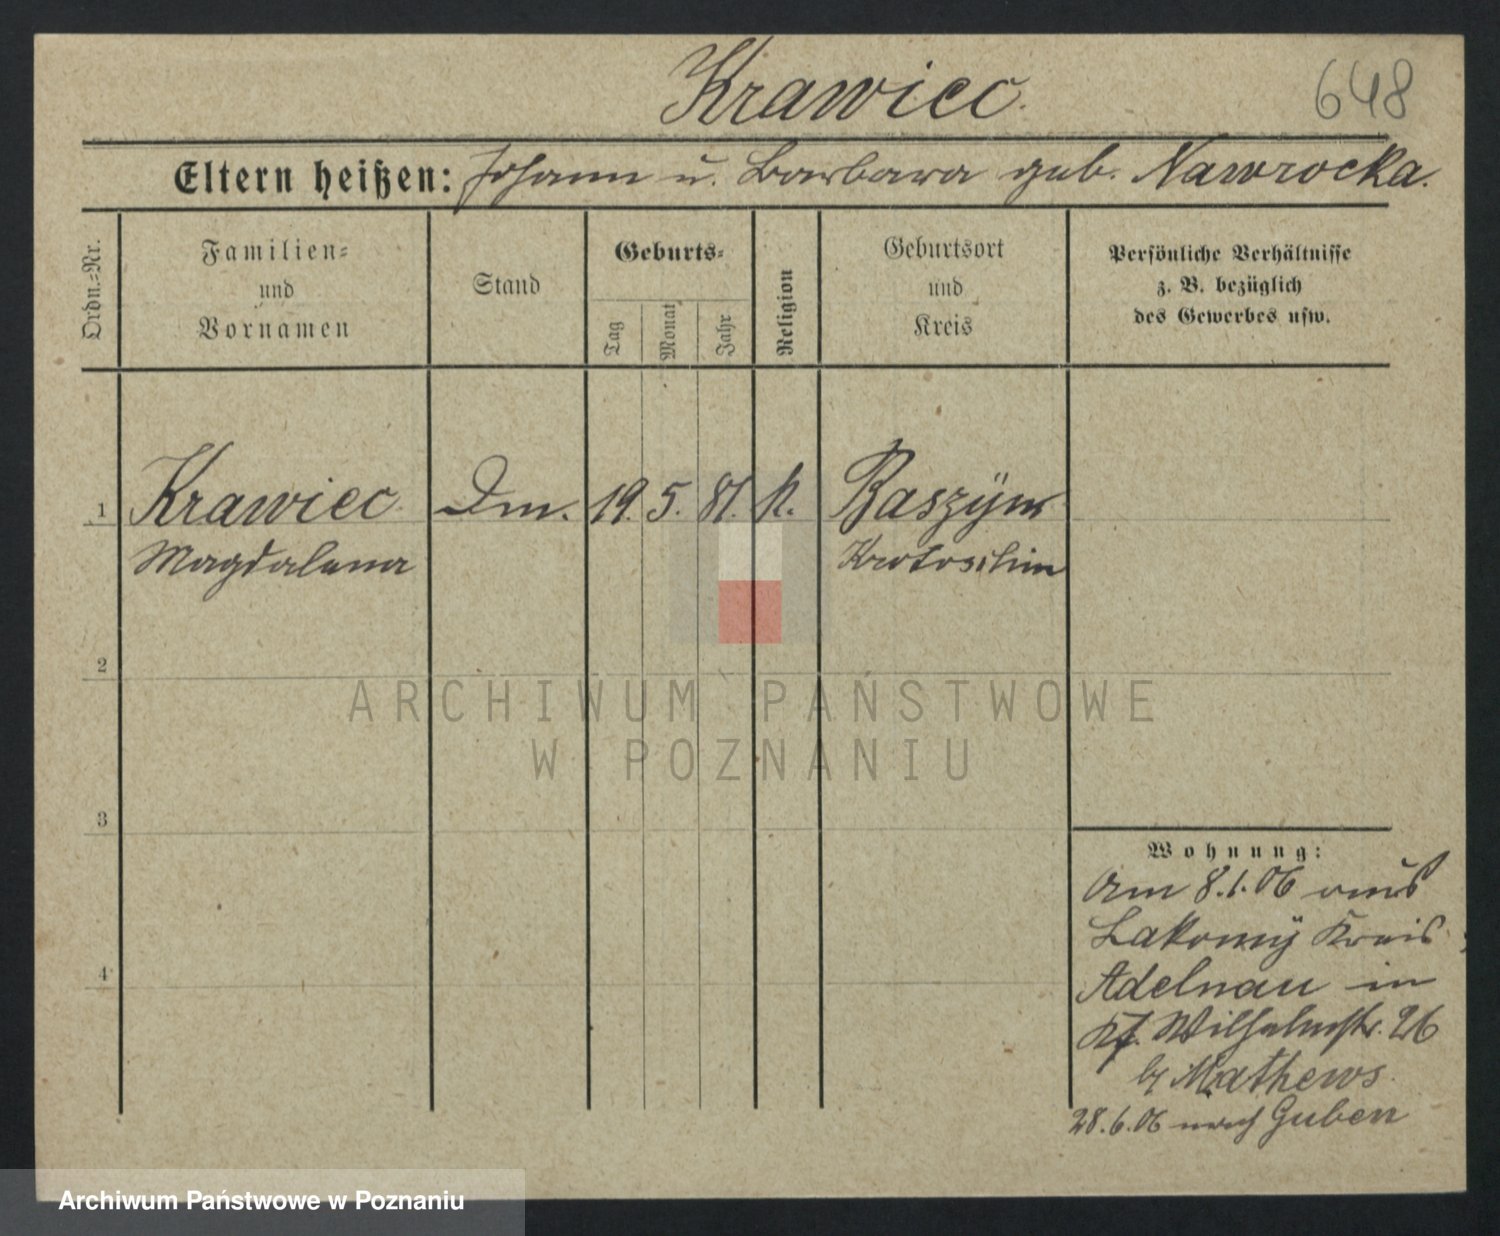 Krawiec.
648
Eltern heißen: Johann u. Barbara geb. Nawrocka.
Ordn.-Nr.
Familien-
und
Vornamen
Stand
Geburts-
Tag
Monat
Jahr
Religion
Geburtsort
und
Kreis
Persönliche Verhältnisse
z. B. bezüglich
des Gewerbes usw.
1 Krawiec Dm. 19. 5. 81. k. Baszyny
Magdalena Krotoschin
2
3
4
Wohnung:
Am 8.1.06 aus
Lakomy Kreis
Adelnau in
Kf. Wilhelmstr. 26
by Mathews.
28.6.06 nach Guben
ARCHIWUM PAŃSTWOWE
W POZNANIU
Archiwum Państwowe w Poznaniu